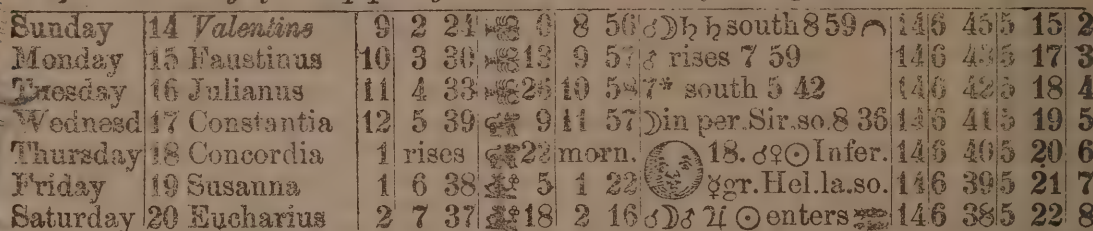 Sunday 14 Valentine 9 2 24 6 8 56 ☌☽♄ ♄ south 8 59 14 6 45 5 15 2
Monday 15 Faustinus 10 3 30 13 9 57 ♂ rises 7 59 14 6 43 5 17 3
Tuesday 16 Julianus 11 4 33 26 10 58 7* south 5 42 14 6 42 5 18 4
Wednesd 17 Constantia 12 5 39 9 11 57 ☽in per.Sir.so.8 36 14 6 41 5 19 5
Thursday 18 Concordia 1 rises 22 morn. 18. ☌♀☉Infer. 14 6 40 5 20 6
Friday 19 Susanna 1 6 38 5 1 22 ☿gr.Hel.la.so. 14 6 39 5 21 7
Saturday 20 Eucharius 2 7 37 18 2 16 ☌☽♂ ♃ ☉enters 14 6 38 5 22 8